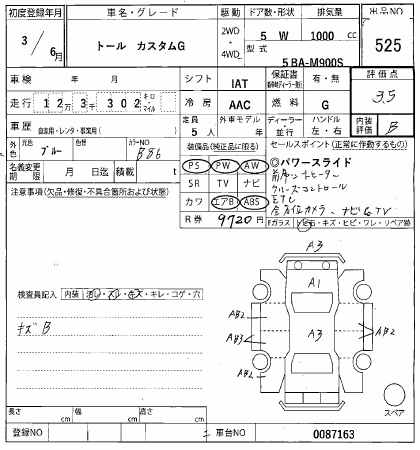 初度登録年月 車名・グレード 駆動 ドア数・形状 排気量 出品NO
3/6月 トール カスタムG 2WD・4WD 5 W 1000 cc 525
型式 5BA-M900S
車検 年 月 シフト IAT 保証書 有・無 評価点
走行 12万3千302 キロ・マイル 冷房 AAC 燃料 G 3.5
車歴 自家用・レンタ・事業用( ) 定員 5人 外車モデル 年 ディーラー・並行 ハンドル 左・右 内装評価 B
外色 元色 ブルー 色替 カラーNO B86 装備品(純正品に限る) セールスポイント(正常に作動するもの)
名義変更期限 月 日迄 積載 t PS PW AW ◎パワースライド
注意事項(欠品・修復・不具合箇所および状態) SR TV ナビ 前席シートヒーター
クルーズコントロール
カワ エアB ABS
R券 9720円 全方位カメラ ナビ&TV
Fガラス トビ石・キズ・ヒビ・ワレ・リペア跡
検査員記入 内装 ヨレ・スレ・キズ・キレ・コゲ・穴
キズB
A3
A1
AB2
AB3
A3
AB2
AB2
A3
スペア
長さ cm 幅 cm 高さ cm
登録NO 車台NO 0087163